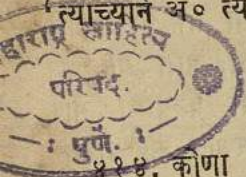 त्याच्यानं अ० त्य
महाराष्ट्र साहित्य
परिषद.
—: पुणें. :—
४१४. कोणा